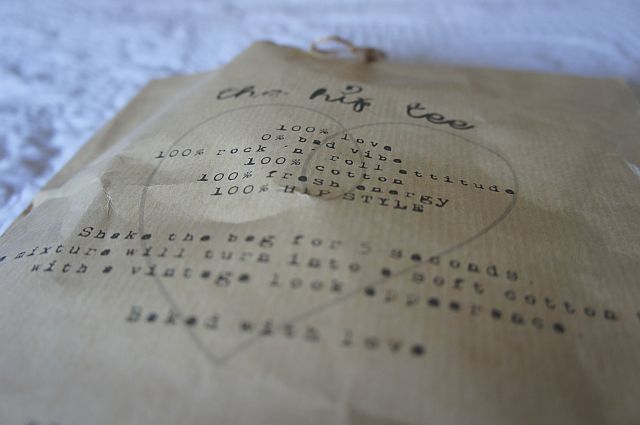 the hip tee
100% love
0% bad vibe
100% rock 'n' roll attitude
100% cotton
100% fresh energy
100% HIP STYLE
Shake the bag for 5 seconds.
mixture will turn into a soft cotton
with a vintage look appearance
Baked with love